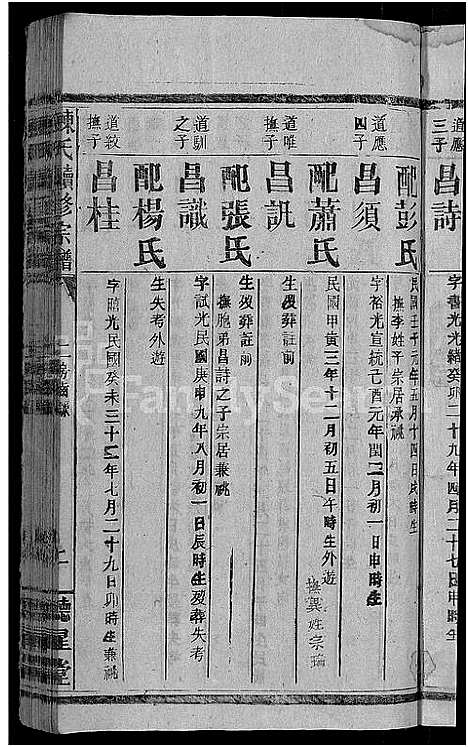 道應
三子
昌詩
字書光光緒癸卯二十九年四月二十七日申時生
配彭氏
民國壬子元年五月十四日戌時生
撫李姓子宗居承祧
道應
四子
昌須
字裕光宣統己酉元年閏二月初一日申時生
配蕭氏
民國甲寅三年十二月初五日午時生外遊
撫異姓宗瑞
道唯
撫子
昌訊
生歿葬註前
配張氏
生歿葬註前
撫胞弟昌詩之子宗居兼祧
道馴
之子
昌識
字試光民國庚申九年八月初一日辰時生歿葬失考
配楊氏
生失考外遊
道教
撫子
昌桂
字昭光民國癸未三十二年七月二十九日卯時生兼祧
陳氏續修宗譜
聽星堂
FamilySearch